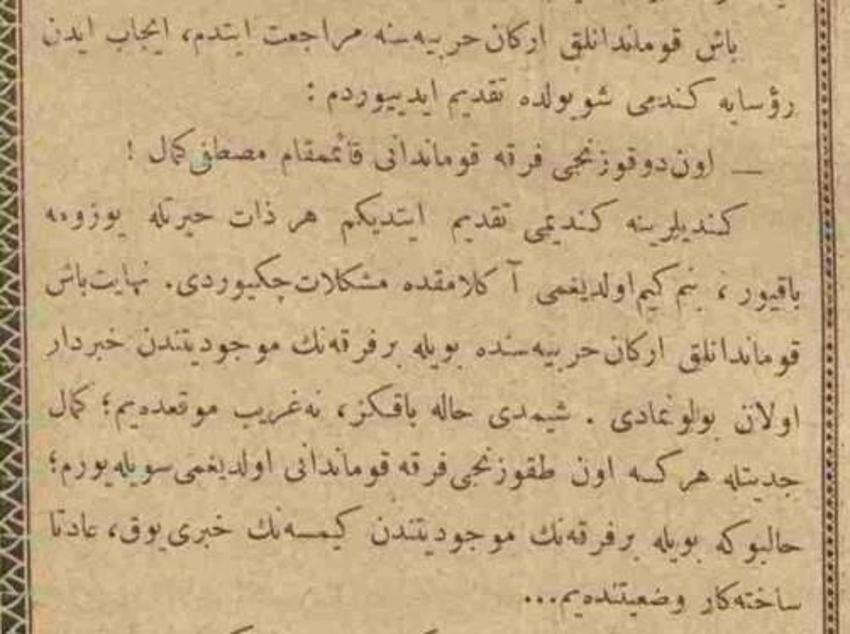 باش قوماندانلق اركان حربيه‌سنه مراجعت ايتدم، ايجاب ايدن
رؤسايه كندمى شو يولده تقديم ايدييوردم :
— اون دوقوزنجى فرقه قوماندانى قائممقام مصطفى كمال !
كنديلرينه كنديمى تقديم ايتديكم هر ذات حيرتله يوزومه
باقيور ، بنم كيم اولديغمى آ كلامقده مشكلات چكيوردى. نهايت باش
قوماندانلق اركان حربيه‌سنده بويله بر فرقه‌نك موجوديتندن خبردار
اولان بولونمادى . شيمدى حاله باقكز، نه غريب موقعده‌يم؛ كمال
جديتله هر كسه اون طقوزنجى فرقه قوماندانى اولديغمى سويله‌يورم؛
حالبوكه بويله بر فرقه‌نك موجوديتندن كيمسه‌نك خبرى يوق، عادتا
ساخته‌كار وضعيتنده‌يم...